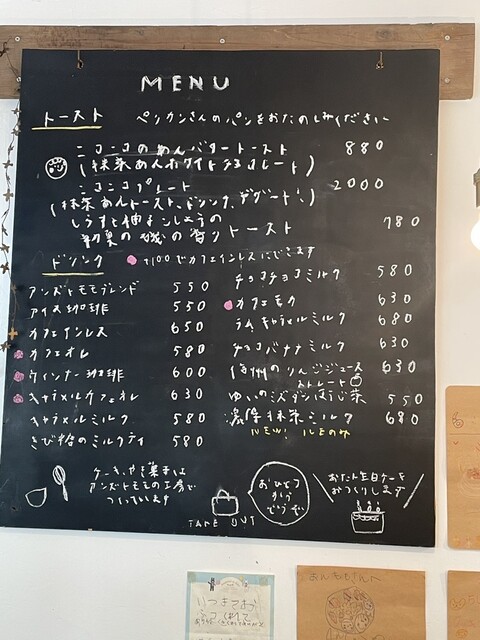 MENU
トースト ペリカンさんのパンをおたのしみください
ニコニコのあんバタートースト 880
(抹茶あんホワイトチョコレート)
ニコニコプレート 2000
(抹茶あんトースト、ドリンク、デザート、)
しらすと柚子こしょうの
初夏の磯の香りトースト 780
ドリンク +100でカフェインレスにできます
アンズトモモブレンド 550
アイス珈琲 550
カフェインレス 650
カフェオレ 580
ウィンナー珈琲 600
キャラメルカフェオレ 630
キャラメルミルク 580
きび糖のミルクティ 580
チョコチョコミルク 580
カフェモカ 630
ラムキャラメルミルク 680
チョコバナナミルク 630
信州のりんごジュース 630
ストレート
ゆいのミズダシほうじ茶 550
濃厚抹茶ミルク 680
NEW!
ケーキ、やき菓子は
アンズトモモの工房で
つくっています
TAKE OUT
おひとつ
から
どうぞ
おたん生日ケーキ
おつくりします
いつもつお
あんももさんへ